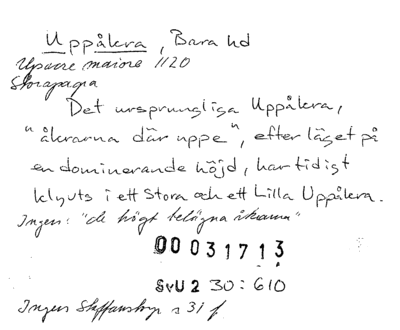 Uppåkra, Bara hd
Upacre maiore 1120
Det ursprungliga Uppåkra,
"åkrarna där uppe", efter läget på
en dominerande höjd, har tidigt
klyuts i ett Stora och ett Lilla Uppåkra.
Ingers: "de högt belägna åkrarna"
00031713
SvU 2 30:610
Ingers Staffanstorp s 31 f